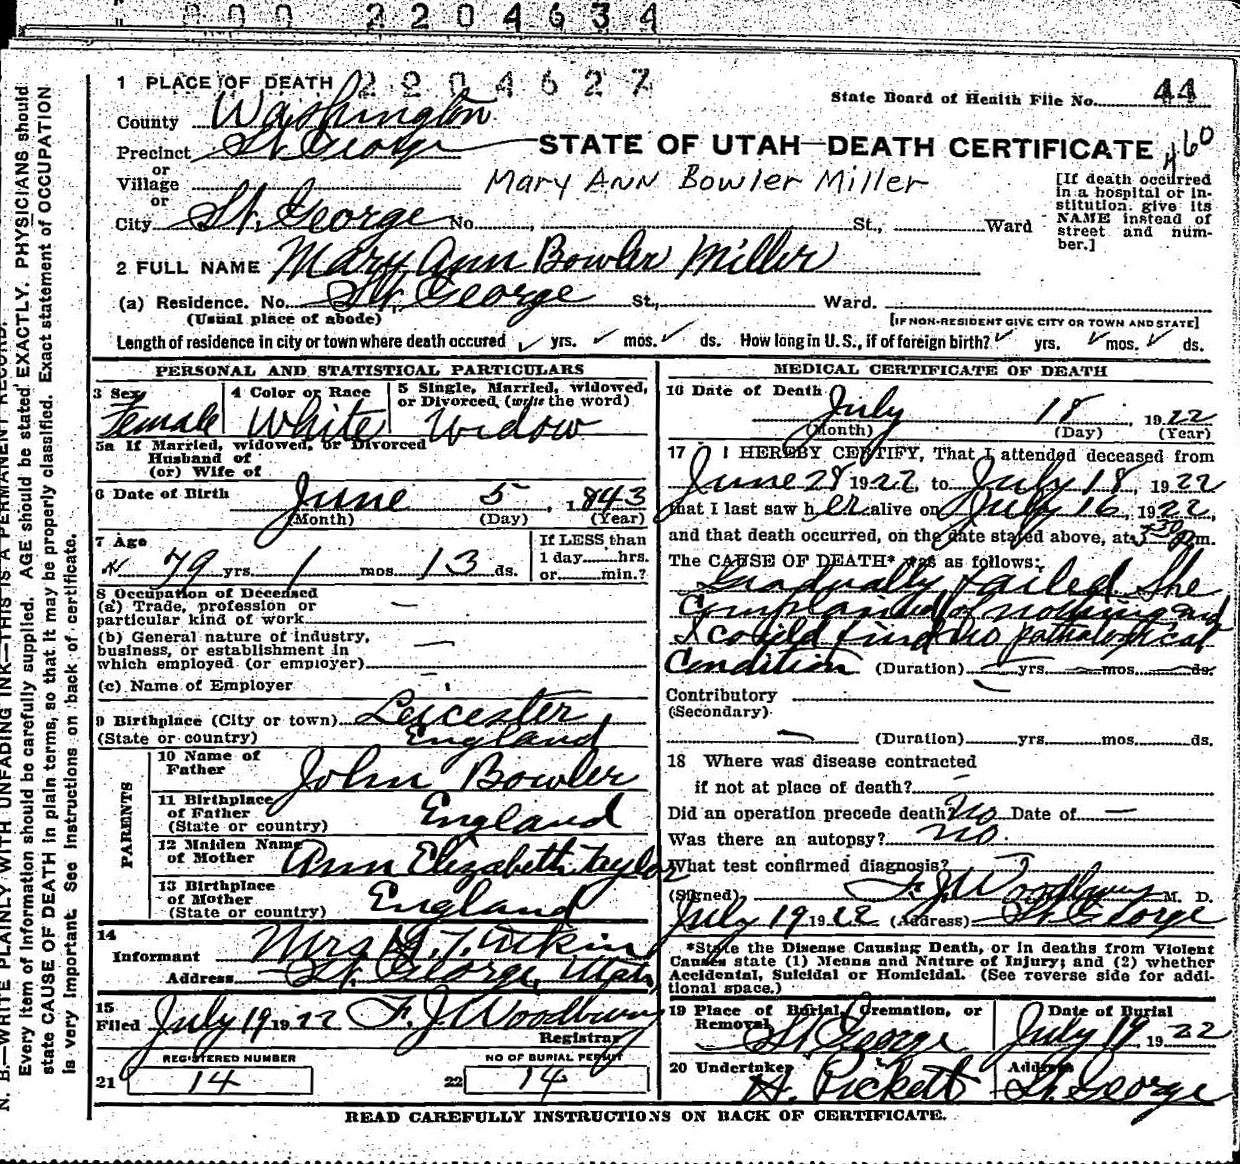 000 2204634
1 PLACE OF DEATH 2204627
State Board of Health File No. 44
County Washington
Precinct St. George
STATE OF UTAH—DEATH CERTIFICATE
460
or
Village
Mary Ann Bowler Miller
or
City St. George No. St., Ward
[If death occurred
in a hospital or in-
stitution, give its
NAME instead of
street and num-
ber.]
2 FULL NAME Mary Ann Bowler Miller
(a) Residence. No. St. George St., Ward.
(Usual place of abode)
[IF NON-RESIDENT GIVE CITY OR TOWN AND STATE]
Length of residence in city or town where death occured ✓ yrs. ✓ mos. ✓ ds. How long in U. S., if of foreign birth? ✓ yrs. ✓ mos. ✓ ds.
PERSONAL AND STATISTICAL PARTICULARS
3 Sex
Female
4 Color or Race
White
5 Single, Married, widowed,
or Divorced, (write the word)
Widow
5a If Married, widowed, or Divorced
Husband of
(or) Wife of
6 Date of Birth June 5, 1843
(Month) (Day) (Year)
7 Age
79 yrs. 1 mos. 13 ds.
If LESS than
1 day hrs.
or min.?
8 Occupation of Deceased
(a) Trade, profession or
particular kind of work —
(b) General nature of industry,
business, or establishment in
which employed (or employer) —
(c) Name of Employer -
9 Birthplace (City or town) Leicester
(State or country) England
PARENTS
10 Name of
Father John Bowler
11 Birthplace
of Father
(State or country) England
12 Maiden Name
of Mother Ann Elizabeth Taylor
13 Birthplace
of Mother
(State or country) England
14
Informant Mrs. Atkin
Address St. George, Utah
15
Filed July 19 1922 F. J. Woodbury
Registrar
REGISTERED NUMBER
21 14
NO OF BURIAL PERMIT
22 14
MEDICAL CERTIFICATE OF DEATH
16 Date of Death
July 18, 1922
(Month) (Day) (Year)
17 I HEREBY CERTIFY, That I attended deceased from
June 28 1922, to July 18, 1922
that I last saw her alive on July 16, 1922,
and that death occurred, on the date stated above, at pm.
The CAUSE OF DEATH* was as follows:
Gradually failed. She
complained of nothing and
I could find no pathological
condition (Duration) yrs. mos. ds.
Contributory
(Secondary)
— (Duration) yrs. mos. ds.
18 Where was disease contracted
if not at place of death? —
Did an operation precede death? No Date of —
Was there an autopsy? no.
What test confirmed diagnosis?
(Signed) F. J. Woodbury M. D.
July 19 1922 (Address) St. George
*State the Disease Causing Death, or in deaths from Violent
Causes state (1) Means and Nature of Injury; and (2) whether
Accidental, Suicidal or Homicidal. (See reverse side for addi-
tional space.)
19 Place of Burial, Cremation, or
Removal St. George
Date of Burial
July 19, 1922
20 Undertaker
H. Pickett
Address
St. George
READ CAREFULLY INSTRUCTIONS ON BACK OF CERTIFICATE.
N. B.—WRITE PLAINLY WITH UNFADING INK—THIS IS A PERMANENT RECORD.
Every item of information should be carefully supplied. AGE should be stated EXACTLY. PHYSICIANS should
state CAUSE OF DEATH in plain terms, so that it may be properly classified. Exact statement of OCCUPATION
is very important. See instructions on back of certificate.